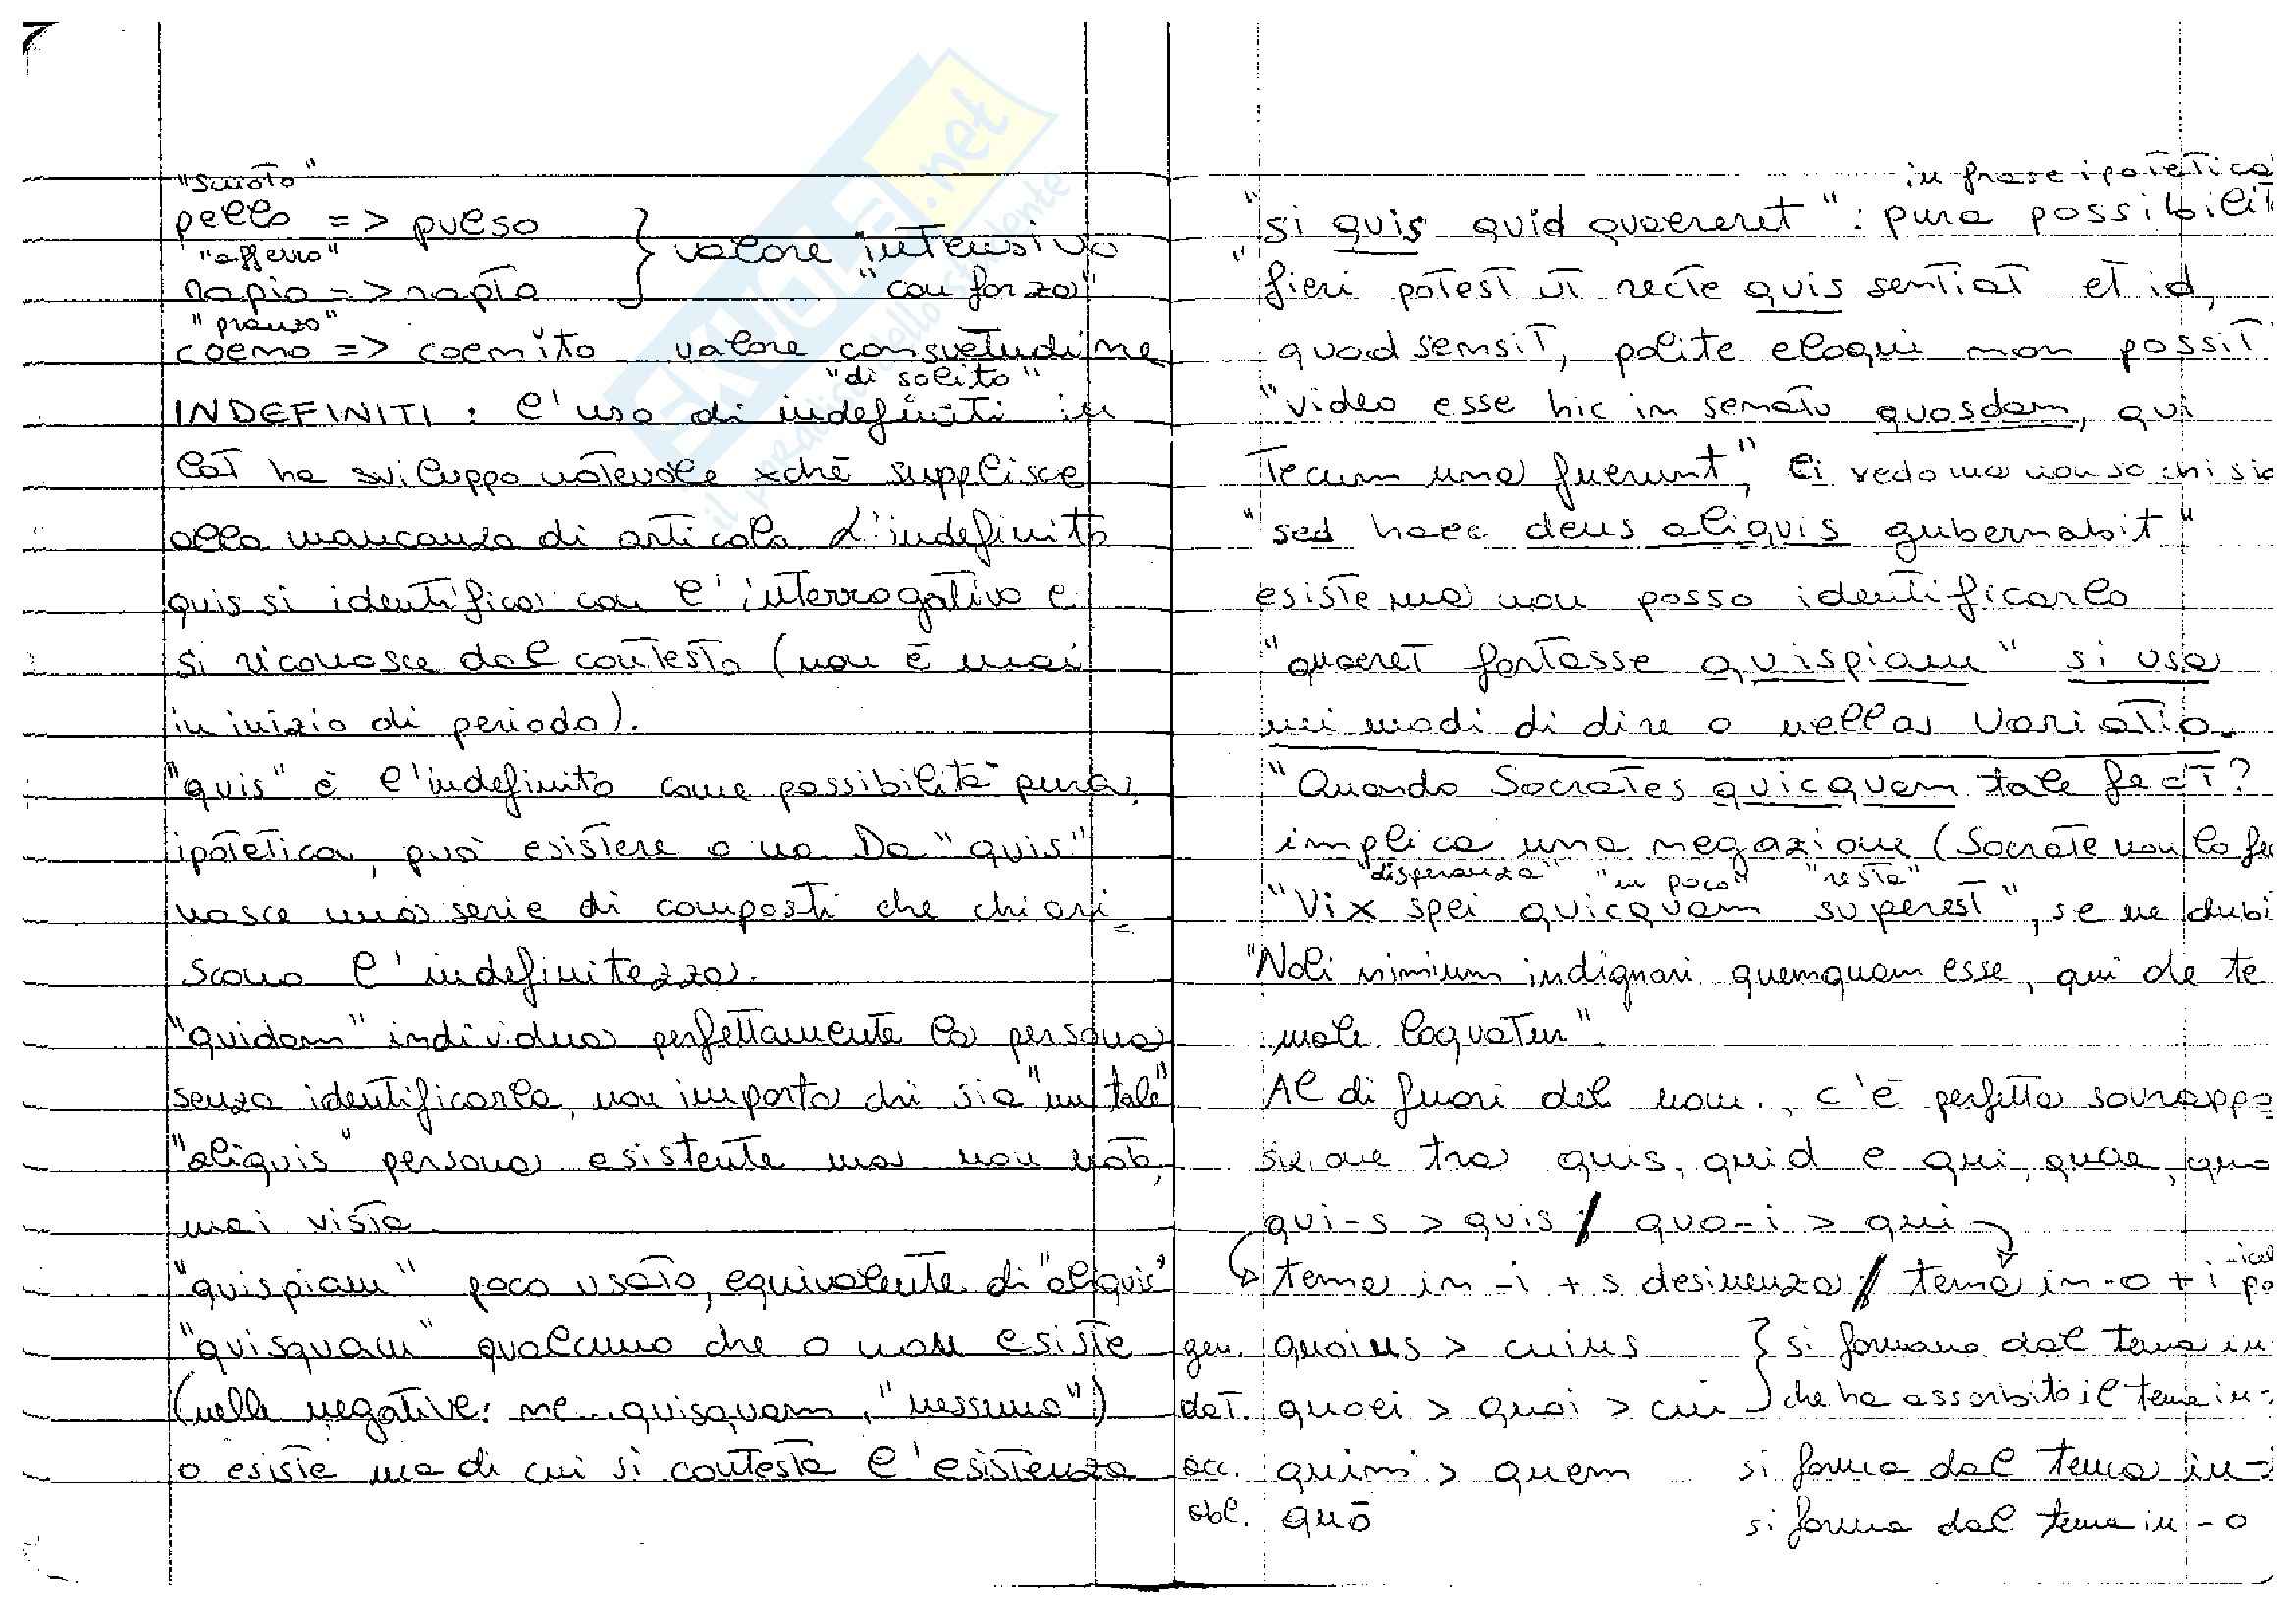 "scuoto"
pello => pulso
"afferro"
} valore intensivo
rapio => rapto
"con forza"
"pranzo"
coemo => coemito valore consuetudine
"di solito"
INDEFINITI : l'uso di indefiniti in
lat ha sviluppo notevole xchè supplisce
alla mancanza di articolo L'indefinito
quis si identifica con l'interrogativo e
si riconosce dal contesto (non è mai
in inizio di periodo).
"quis" è l'indefinito come possibilità pura,
ipotetica, può esistere o no. Da "quis"
nasce una serie di composti che chiari
scono l'indefinitezza.
"quidam" individua perfettamente la persona
senza identificarla, non importa chi sia "un tale"
"aliquis" persona esistente ma non nota,
mai vista
"quispiam" poco usato, equivalente di "aliquis"
"quisquam" qualcuno che o non esiste
(nelle negative: ne quisquam, "nessuno")
o esiste ma di cui si contesta l'esistenza
in frase ipotetica
"si quis quid quaereret" : pura possibilit
"fieri potest ut recte quis sentiat et id,
quod sensit, polite eloqui non possit
"video esse hic in senatu quosdam, qui
tecum una fuerunt", li vedo ma non so chi sia
"sed haec deus aliquis gubernabit"
esiste ma non posso identificarlo
"quaeret fortasse quispiam" si usa
nei modi di dire o nella variatio.
"Quando Socrates quicquam tale fecit?
implica una negazione (Socrate non lo fe
"di speranza" "un poco" "resta"
"Vix spei quicquam superest", se ne dubi
"Noli nimium indignari quemquam esse, qui de te
male loquatur".
Al di fuori del nom., c'è perfetta sovrappo
sizione tra quis, quid e qui, quae, quo
qui-s > quis / quo-i > qui
tema in -i + s desinenza / tema in -o + i
gen. quoius > cuius } si formano dal tema in
dat. quoei > quoi > cui } che ha assorbito il tema in -
acc. quim > quem si forma dal tema in -i
abl. quō si forma dal tema in -o
il meglio dello studente
SKUOLA.net